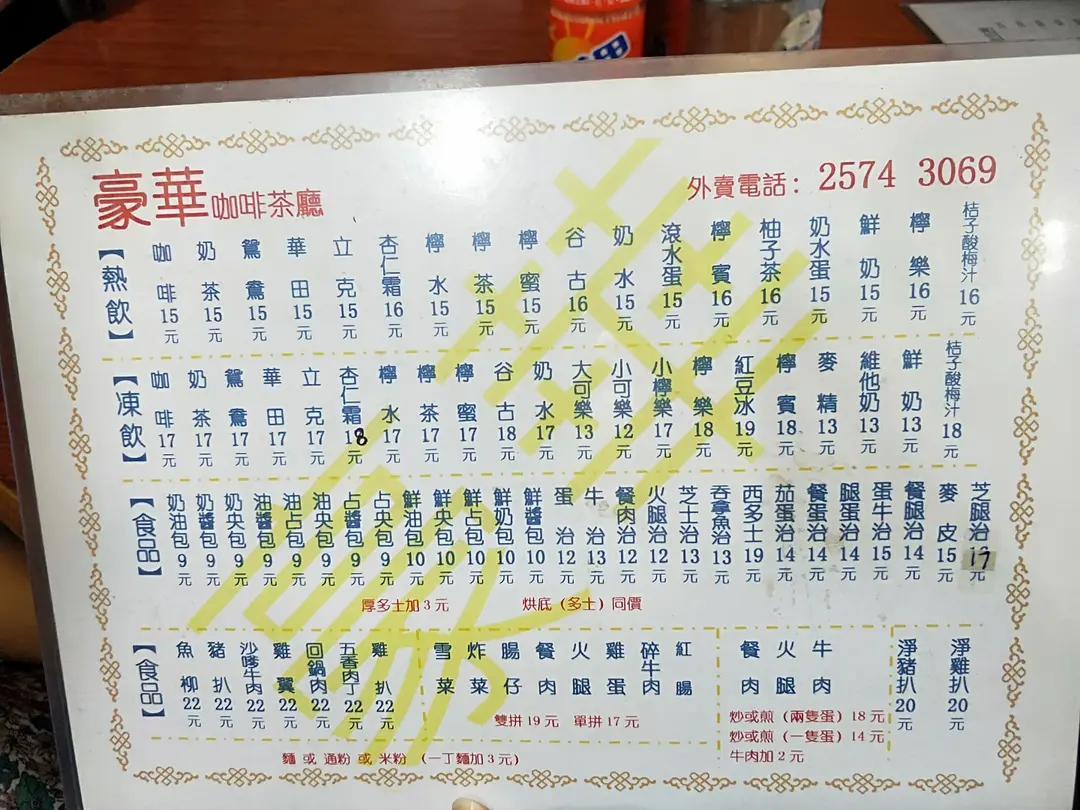 豪華咖啡茶廳
外賣電話：2574 3069
【熱飲】
咖啡15元
奶茶15元
鴛鴦15元
華田15元
立克15元
杏仁霜16元
檸水15元
檸茶15元
檸蜜15元
谷古16元
奶水15元
滾水蛋15元
檸賓16元
柚子茶16元
奶水蛋15元
鮮奶15元
檸樂16元
桔子酸梅汁16元
【凍飲】
咖啡17元
奶茶17元
鴛鴦17元
華田17元
立克17元
杏仁霜18元
檸水17元
檸茶17元
檸蜜17元
谷古18元
奶水17元
大可樂13元
小可樂12元
小檸樂17元
檸樂18元
紅豆冰19元
檸賓18元
麥精13元
維他奶13元
鮮奶13元
桔子酸梅汁18元
【食品】
奶油包9元
奶醬包9元
奶央包9元
油醬包9元
油占包9元
油央包9元
占醬包9元
占央包9元
鮮油包10元
鮮央包10元
鮮占包10元
鮮奶包10元
鮮醬包10元
蛋治12元
牛治13元
餐肉治12元
火腿治12元
芝士治13元
吞拿魚治13元
西多士19元
茄蛋治14元
餐蛋治14元
腿蛋治14元
蛋牛治15元
餐腿治14元
麥皮15元
芝腿治17元
厚多士加3元
烘底（多士）同價
【食品】
魚柳22元
豬扒22元
沙嗲牛肉22元
雞翼22元
回鍋肉22元
五香肉丁22元
雞扒22元
雪菜
炸菜
腸仔
餐肉
火腿
雞蛋
碎牛肉
紅腸
雙拼19元 單拼17元
餐肉
火腿
牛肉
炒或煎（兩隻蛋）18元
炒或煎（一隻蛋）14元
牛肉加2元
淨豬扒20元
淨雞扒20元
麵 或 通粉 或 米粉 （一丁麵加3元）
豪華